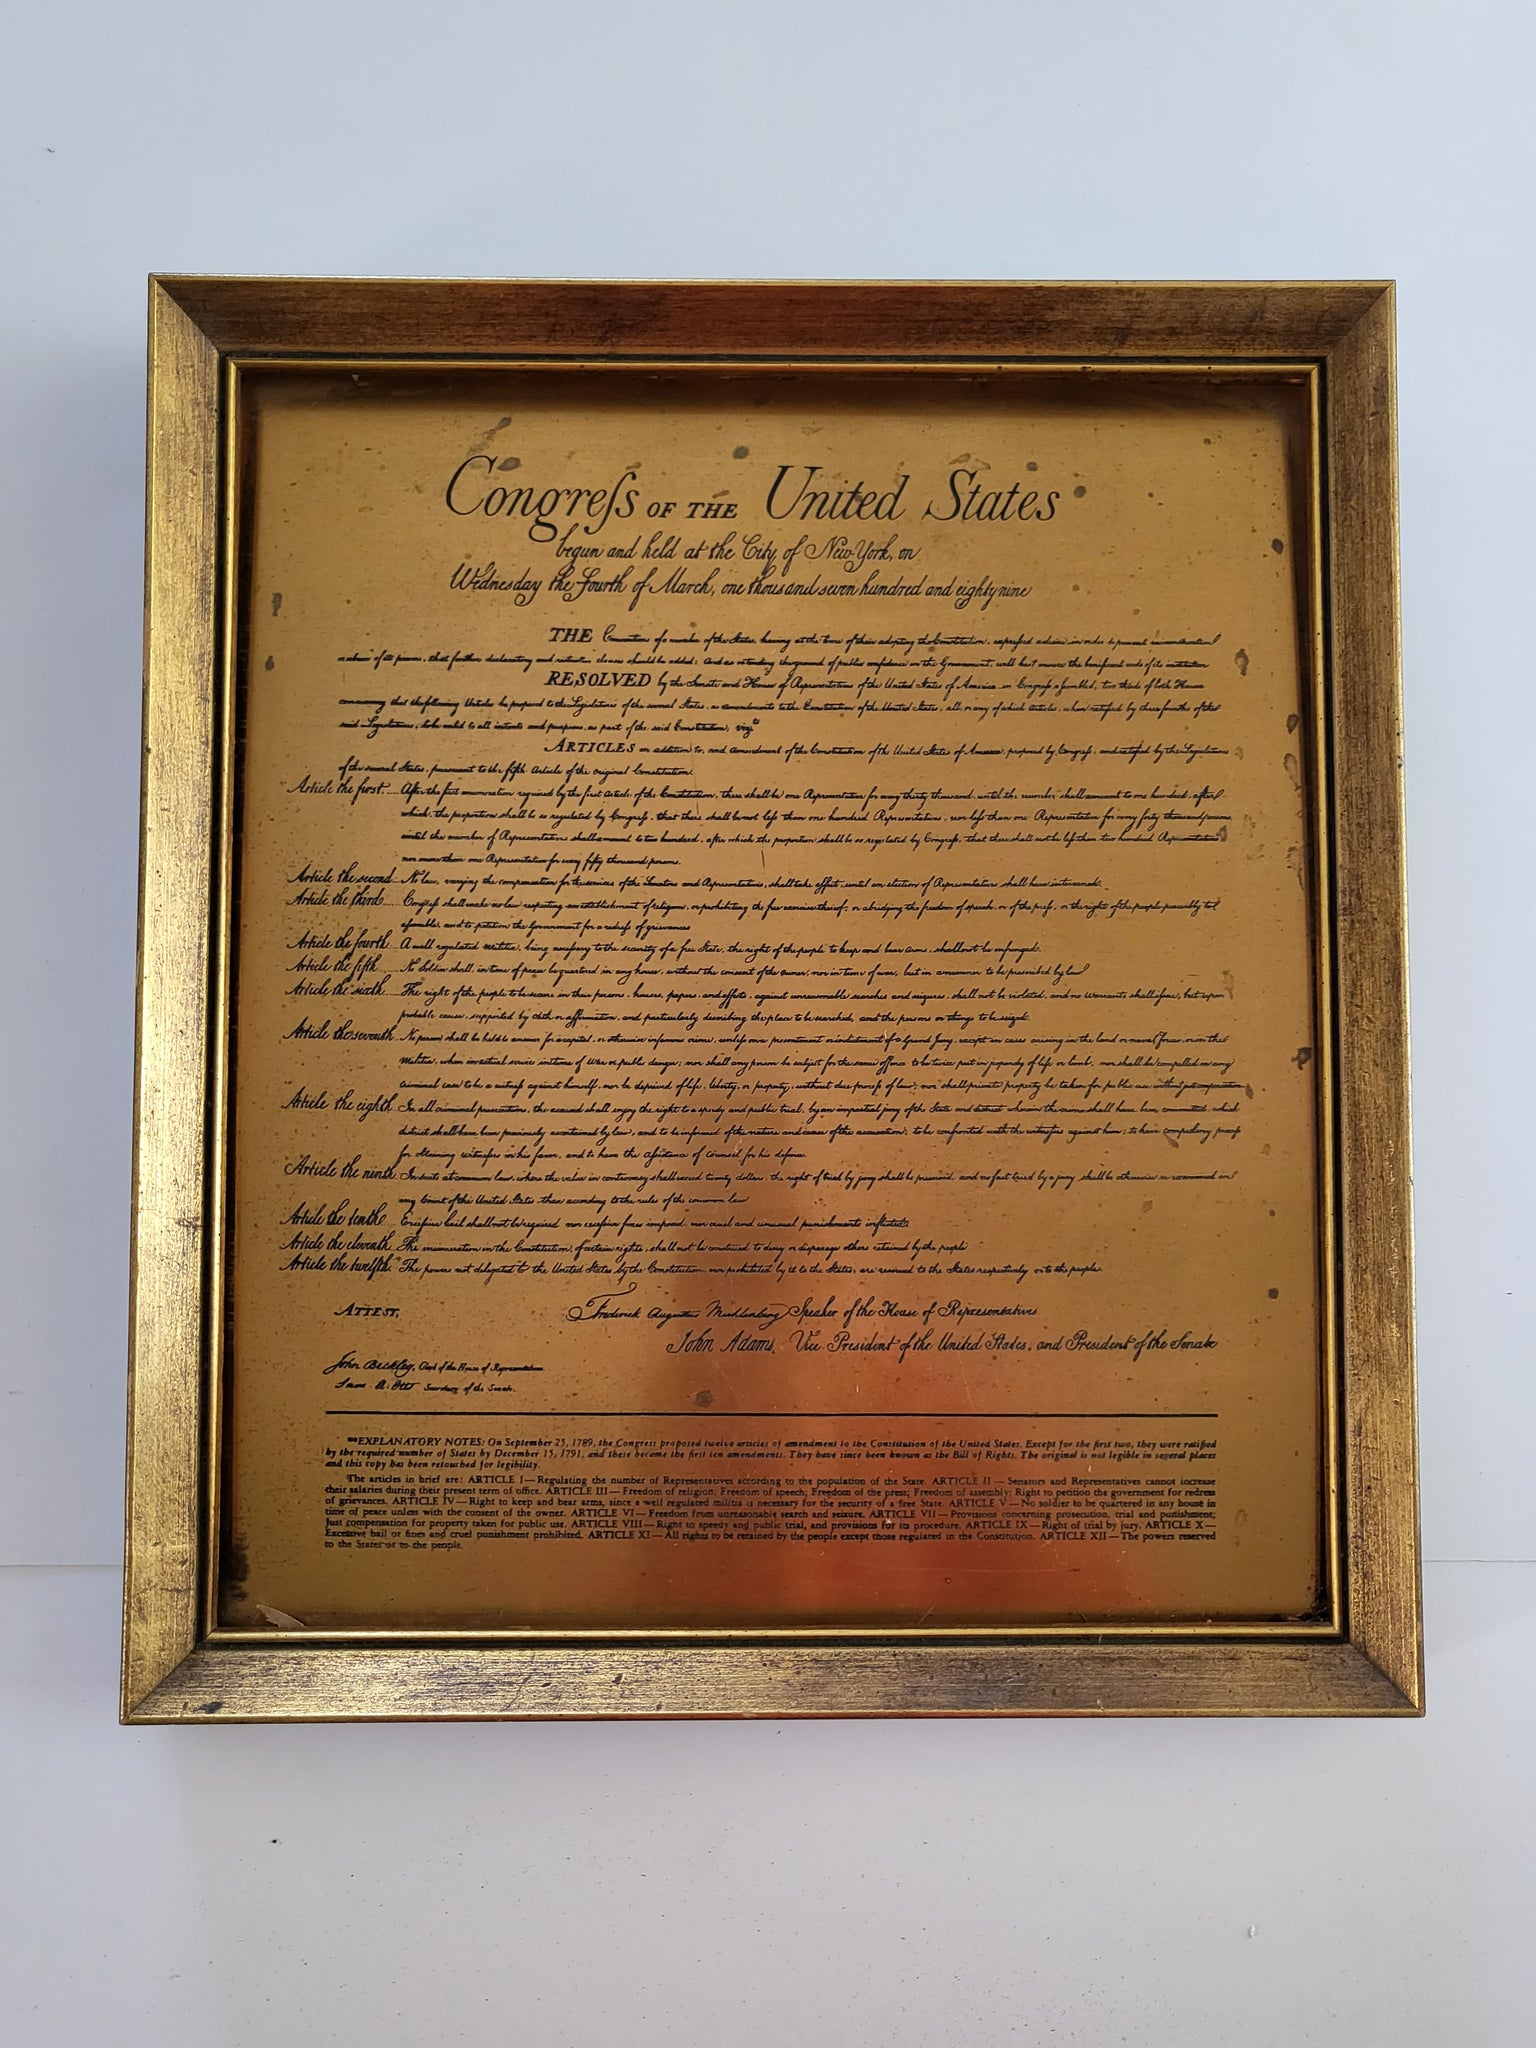 Congreſs OF THE United States
begun and held at the City of New-York, on
Wednesday the Fourth of March, one thousand seven hundred and eighty nine
THE Conventions of a number of the States, having at the time of their adopting the Constitution, expreſsed a desire, in order to prevent misconstruction
or abuse of its powers, that further declaratory and restrictive clauses should be added: And as extending the ground of public confidence in the Government, will best insure the beneficent ends of its institution
RESOLVED by the Senate and House of Representatives of the United States of America in Congreſs aſsembled, two thirds of both Houses
concurring that the following Articles be proposed to the Legislatures of the several States, as amendments to the Constitution of the United States, all or any of which articles, when ratified by three fourths of the
said Legislatures, to be valid to all intents and purposes, as part of the said Constitution; vizt
ARTICLES in addition to, and amendment of the Constitution of the United States of America, proposed by Congreſs, and ratified by the Legislatures
of the several States, pursuant to the fifth Article of the original Constitution.
Article the first. After the first enumeration required by the first Article of the Constitution, there shall be one Representative for every thirty thousand, until the number shall amount to one hundred, after
which, the proportion shall be so regulated by Congreſs, that there shall be not leſs than one hundred Representatives, nor leſs than one Representative for every forty thousand persons,
until the number of Representatives shall amount to two hundred, after which the proportion shall be so regulated by Congreſs, that there shall not be leſs than two hundred Representatives
nor more than one Representative for every fifty thousand persons.
Article the second No law, varying the compensation for the services of the Senators and Representatives, shall take effect, until an election of Representatives shall have intervened.
Article the third Congreſs shall make no law respecting an establishment of religion, or prohibiting the free exercise thereof; or abridging the freedom of speech, or of the preſs, or the right of the people peaceably to
aſsemble, and to petition the Government for a redreſs of grievances
Article the fourth A well regulated Militia, being neceſsary to the security of a free State, the right of the people to keep and bear Arms, shall not be infringed.
Article the fifth No Soldier shall, in time of peace be quartered in any house, without the consent of the owner, nor in time of war, but in a manner to be prescribed by law
Article the sixth The right of the people to be secure in their persons, houses, papers, and effects, against unreasonable searches and seizures, shall not be violated, and no Warrants shall iſsue, but upon
probable cause, supported by Oath or affirmation, and particularly describing the place to be searched, and the persons or things to be seized.
Article the seventh No person shall be held to answer for a capital, or otherwise infamous crime, unleſs on a presentment or indictment of a Grand Jury, except in cases arising in the land or naval Forces, or in the
Militia, when in actual service in time of War or public danger; nor shall any person be subject for the same offence to be twice put in jeopardy of life or limb, nor shall be compelled in any
criminal case to be a witneſs against himself, nor be deprived of life, liberty, or property, without due proceſs of law; nor shall private property be taken for public use without just compensation
Article the eighth In all criminal prosecutions, the accused shall enjoy the right to a speedy and public trial, by an impartial jury of the State and district wherein the crime shall have been committed, which
district shall have been previously ascertained by law, and to be informed of the nature and cause of the accusation; to be confronted with the witneſses against him; to have compulsory proceſs
for obtaining witneſses in his favor, and to have the Aſsistance of Counsel for his defence.
Article the ninth In suits at common law, where the value in controversy shall exceed twenty dollars, the right of trial by jury shall be preserved, and no fact tried by a jury shall be otherwise re examined in
any Court of the United States, than according to the rules of the common law
Article the tenth Exceſsive bail shall not be required nor exceſsive fines imposed, nor cruel and unusual punishments inflicted.
Article the eleventh The enumeration in the Constitution, of certain rights, shall not be construed to deny or disparage others retained by the people
Article the twelfth. The powers not delegated to the United States by the Constitution, nor prohibited by it to the States, are reserved to the States respectively or to the people.
ATTEST, Frederick Augustus Muhlenberg Speaker of the House of Representatives
John Adams, Vice President of the United States, and President of the Senate
John Beckley, Clerk of the House of Representatives.
Sam. A. Otis Secretary of the Senate.
**EXPLANATORY NOTES: On September 25, 1789, the Congress proposed twelve articles of amendment to the Constitution of the United States. Except for the first two, they were ratified
by the required number of States by December 15, 1791, and these became the first ten amendments. They have since been known as the Bill of Rights. The original is not legible in several places
and this copy has been retouched for legibility.
The articles in brief are: ARTICLE I—Regulating the number of Representatives according to the population of the State. ARTICLE II — Senators and Representatives cannot increase
their salaries during their present term of office. ARTICLE III — Freedom of religion; Freedom of speech; Freedom of the press; Freedom of assembly; Right to petition the government for redress
of grievances. ARTICLE IV — Right to keep and bear arms, since a well regulated militia is necessary for the security of a free State. ARTICLE V — No soldier to be quartered in any house in
time of peace unless with the consent of the owner. ARTICLE VI — Freedom from unreasonable search and seizure. ARTICLE VII — Provisions concerning prosecution, trial and punishment;
Just compensation for property taken for public use. ARTICLE VIII — Right to speedy and public trial, and provisions for its procedure. ARTICLE IX — Right of trial by jury. ARTICLE X —
Excessive bail or fines and cruel punishment prohibited. ARTICLE XI — All rights to be retained by the people except those regulated in the Constitution. ARTICLE XII — The powers reserved
to the States or to the people.